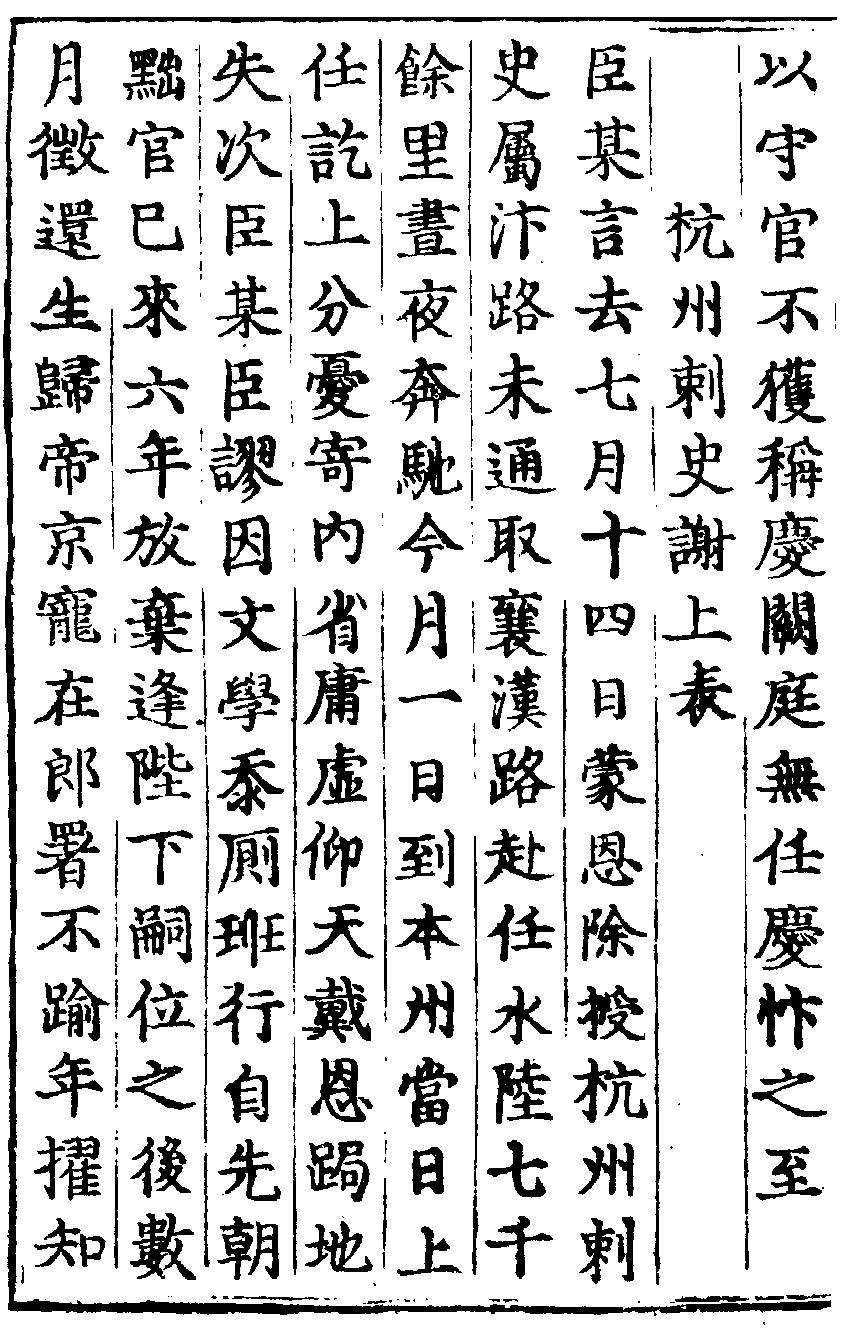 以守官不獲稱慶闕庭無任慶忭之至
杭州刺史謝上表
臣某言去七月十四日蒙恩除授杭州刺
史屬汴路未通取襄漢路赴任水陸七千
餘里晝夜奔馳今月一日到本州當日上
任訖上分憂寄內省庸虛仰天戴恩跼地
失次臣某臣謬因文學忝厠班行自先朝
黜官已來六年放棄逢陛下嗣位之後數
月徵還生歸帝京寵在郎署不踰年擢知